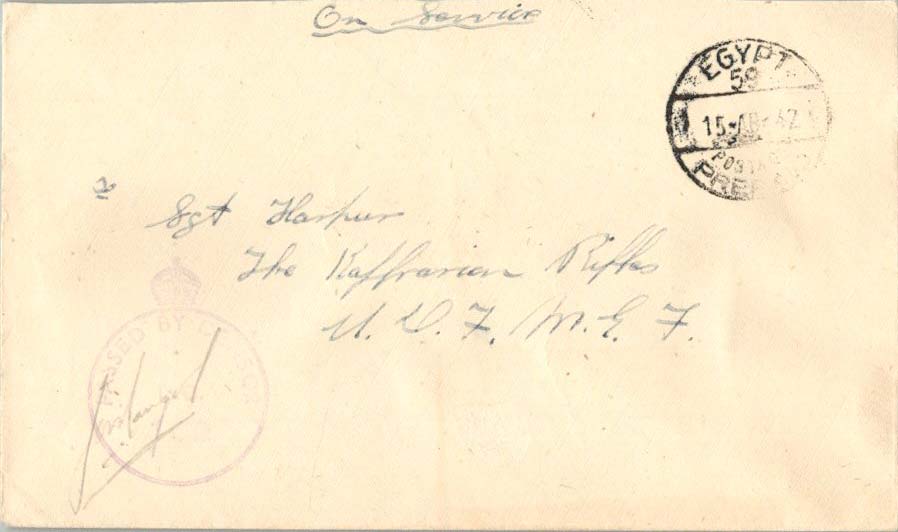 On Service
EGYPT
59
15-AP-42
POSTAGE
PREPAID
Sgt Harpur
The Kaffrarian Rifles
U. D. F. M. E. F.
PASSED BY CENSOR